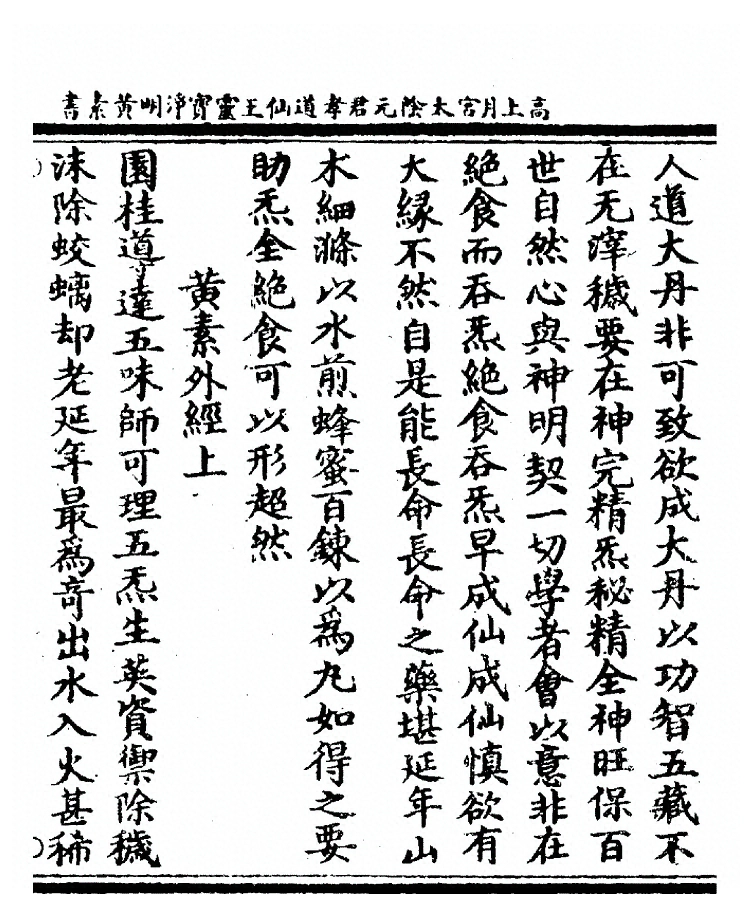 高上月宮太陰元君孝道仙王靈寶淨明黃素書
人道大丹非可致欲成大丹以功智五藏不
在无滓穢要在神完精炁秘精全神旺保百
世自然心與神明契一切學者會以意非在
絶食而吞炁絶食吞炁早成仙成仙慎欲有
大緣不然自是能長命長命之藥堪延年山
木細滌以水煎蜂蜜百鍊以爲丸如得之要
助炁全絶食可以形超然
黃素外經上
園桂道達五味師可理五炁生英資禦除穢
沫除蛟螭却老延年最爲奇出水入火甚稀